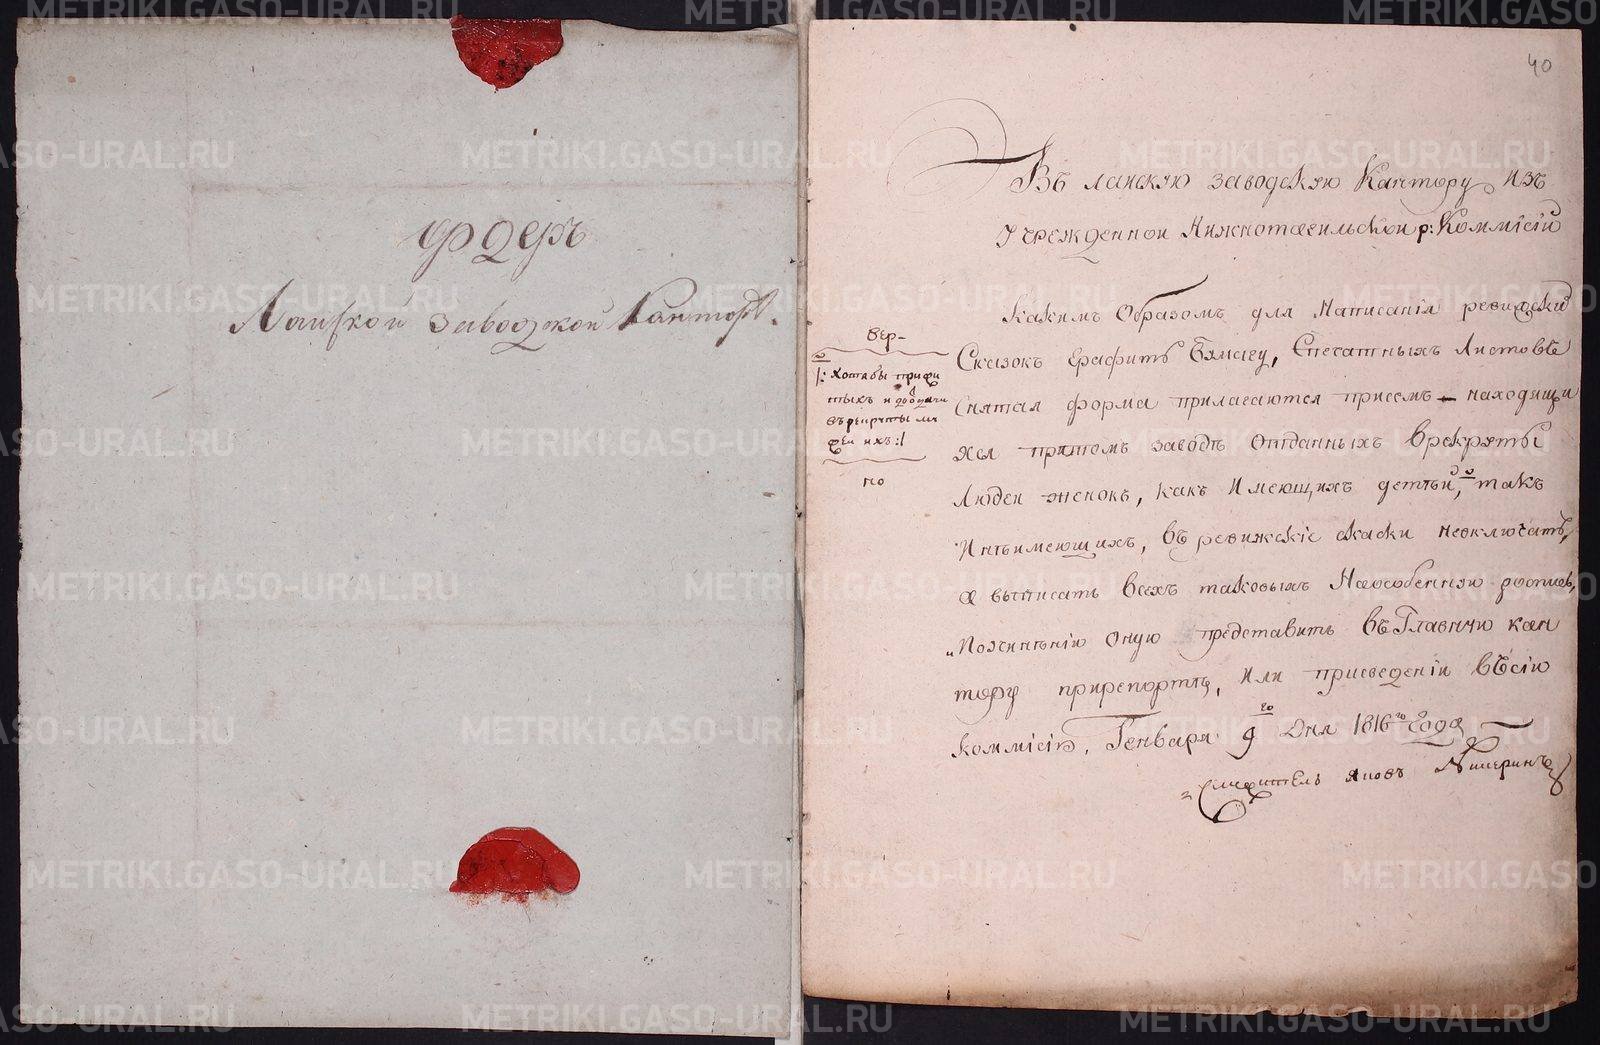 ордеръ
Лайской заводской Канторѣ.
40
Въ лайскую заводскую Кантору изъ
Учрежденной Нижнотагильской р: Коммисіи
Какимъ Образомъ для Написанія ревижскихъ
Сказокъ графить бумагу, Спечатныхъ Листовъ
Снятая форма прилагаются присемъ — находящи
хся притомъ заводѣ Отданныхъ Врекруты
Людей женокъ, какъ Имеющихъ детѣй, такъ
Инѣимеющихъ, въ ревижскіе скаски невключать,
а выписать всехъ таковыхъ Наособенную роспись,
Поучинѣніи Оную представить въ Главную кан
тору прирепортѣ, Или присведеніи въ Сію
коммісію, Генваря 9го Дня 1816го Года
Смотритель Яковъ
вер-
Хотябы
но
METRIKI.GASO-URAL.RU